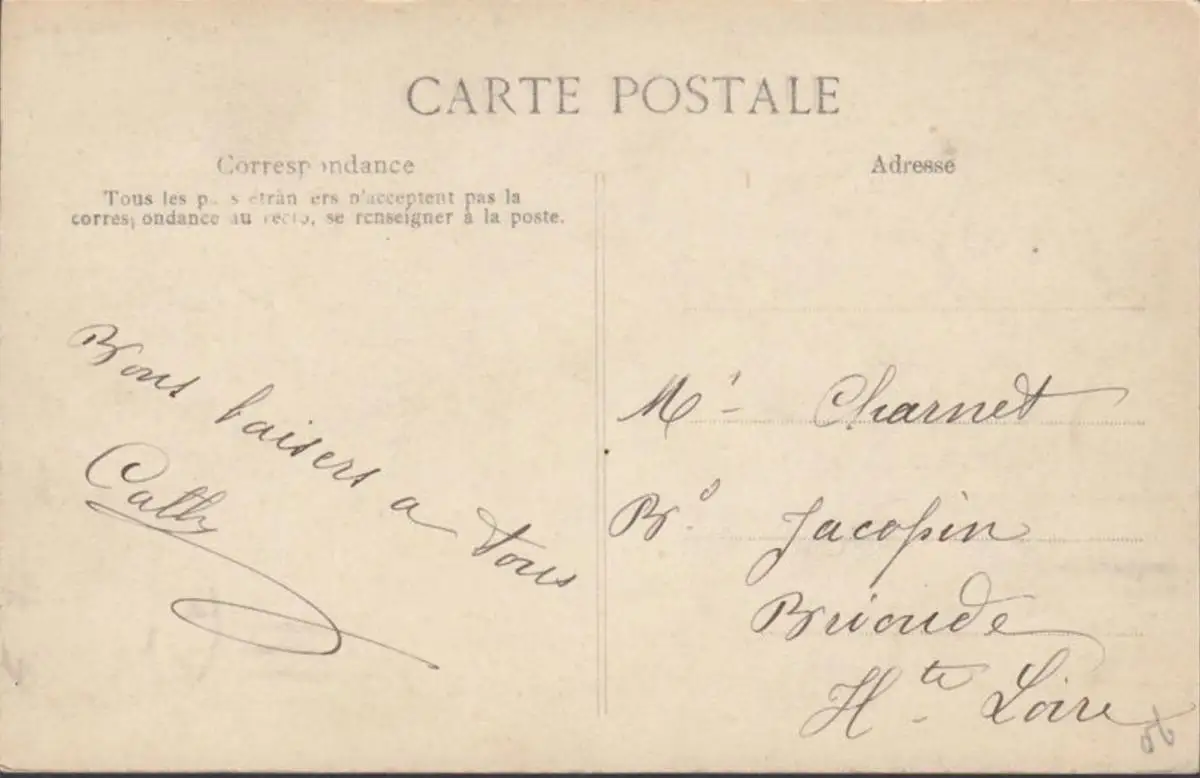 CARTE POSTALE
Correspondance
Tous les pays étrangers n'acceptent pas la
correspondance au recto, se renseigner à la poste.
Bons baisers a tous
Cathy
Adresse
Mr Charnet
Bd Jacopin
Brioude
Hte Loire